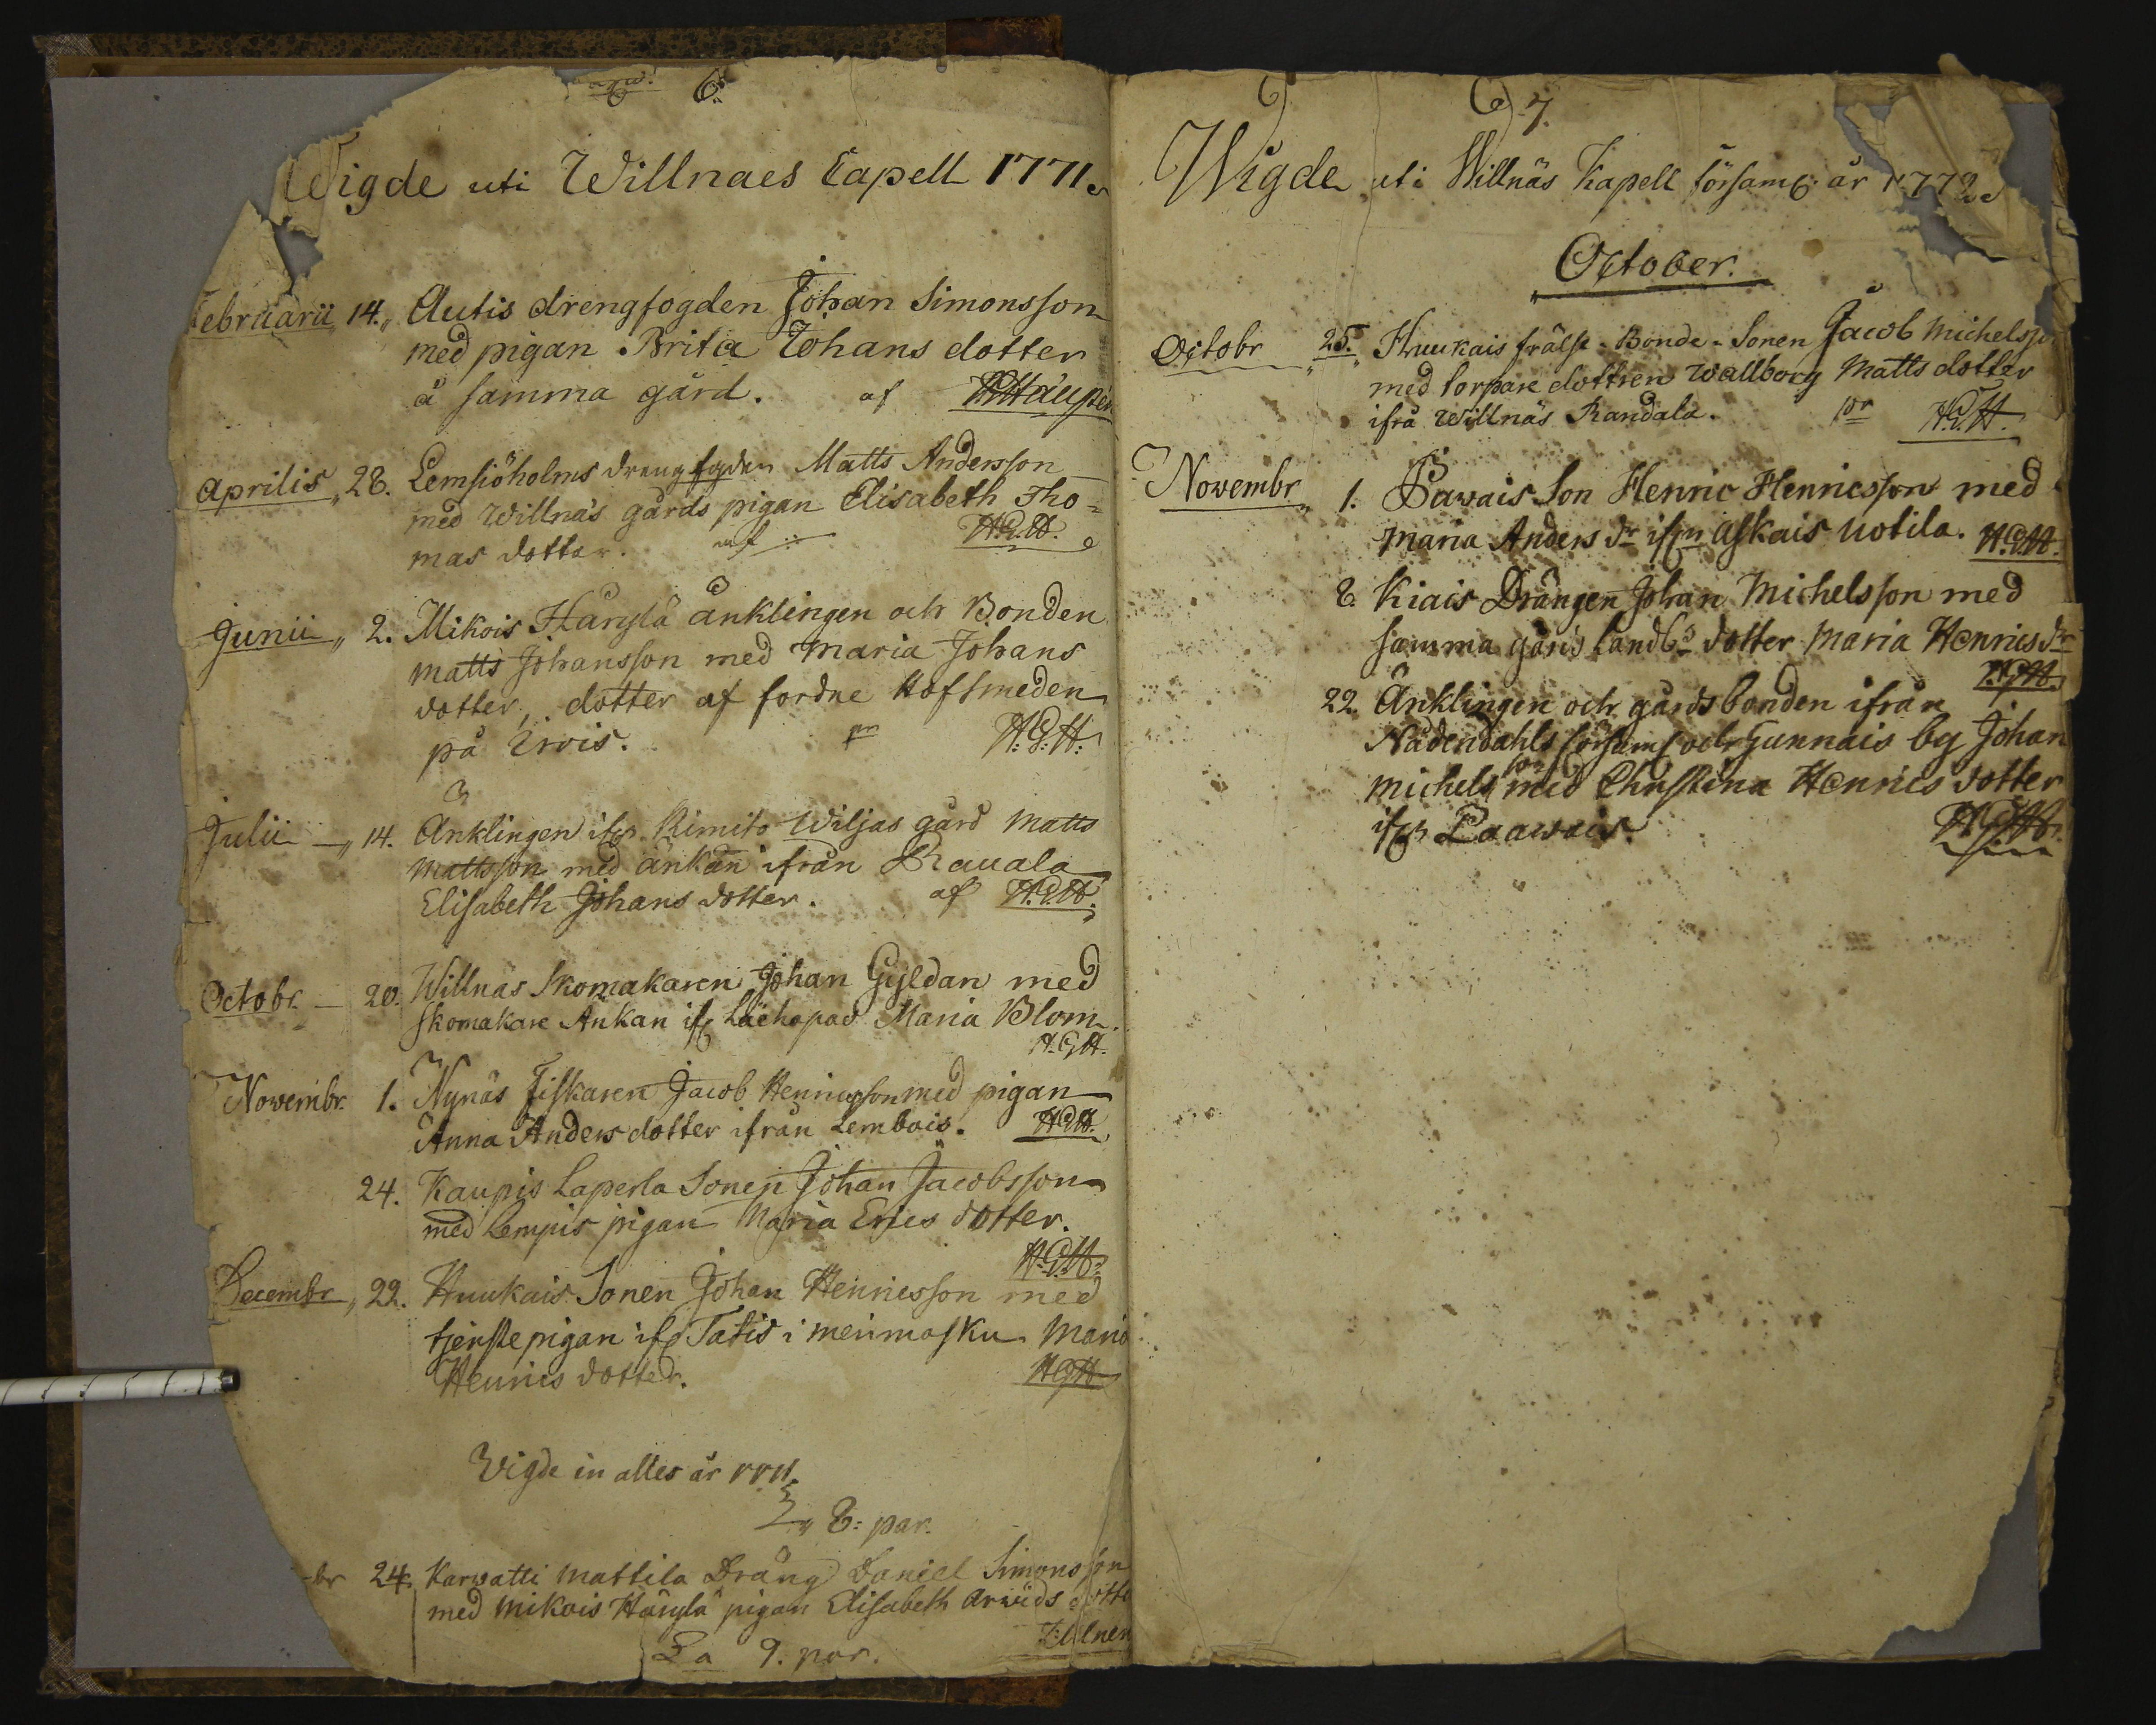 6.
Wigde uti Willnaes Capell 1771.
Februarii 14. Autis drengfogden Johan Simonsson
med pigan Brita Johans dotter
å samma gård. af
Aprilis 28. Lemsiöholms drengfogden Matts Andersson
med Willnäs gårds pigan Elisabeth Tho=
mas dotter. af H.G.H.
Junii 2. Mikois Häryla änklingen och Bonden
Matts Johansson med Maria Johans
dotter, dotter af fordne Hofsmeden
på Ervis. pr H.G.H.
Julii 14. Änklingen ifr Rimito Wiljas gård Matts
Mattsson med änkan ifrån Rauala
Elisabeth Johans dotter. af H.G.H.
Octobr. 20. Willnäs Skomakaren Johan Gyldan med
skomakare Änkan ifr Maria Blom.
H.G.H.
Novembr. 1. Nynäs Fiskaren Jacob Henricsson med pigan
Anna Anders dotter ifrån Lembois. H.G.H.
24. Kaupis Laperla Sonen Johan Jacobsson
med Lempis pigan Maria Erics dotter.
H.G.H.
Decembr 22. Huukais Sonen Johan Henricsson med
tjenstepigan ifr Tatis i merimasku Maria
Henrics dotter. HGH
Wigde in alles år 1771.
8: par.
br 24. Karvatti Mattila Dräng Daniel Simonsson
med Mikois Häryla pigan Elisabeth Arvids dotte
9. par.
7.
Wigde uti Willnäs Kapell församl: år 1772.
October.
Octobr 25. Huukais frälse-Bonde-Sonen Jacob Michelsso
med torpare dottren Wallborg Matts dotter
ifrå Willnäs Randala. pr H.G.H.
Novembr 1. Pawais Son Henric Henricsson med
Maria Anders dr ifrn Askais uotila. H.G.H.
8. Kiais Drängen Johan Michelsson med
samma gårds landb dotter Maria Henrics dr
H.G.H.
22. Änklingen och gårdsbonden ifrån
Nådendahls församl och Gunnais by Johan
Michelsson med Christina Henrics dotter
ifrn Paawais. H.G.H.